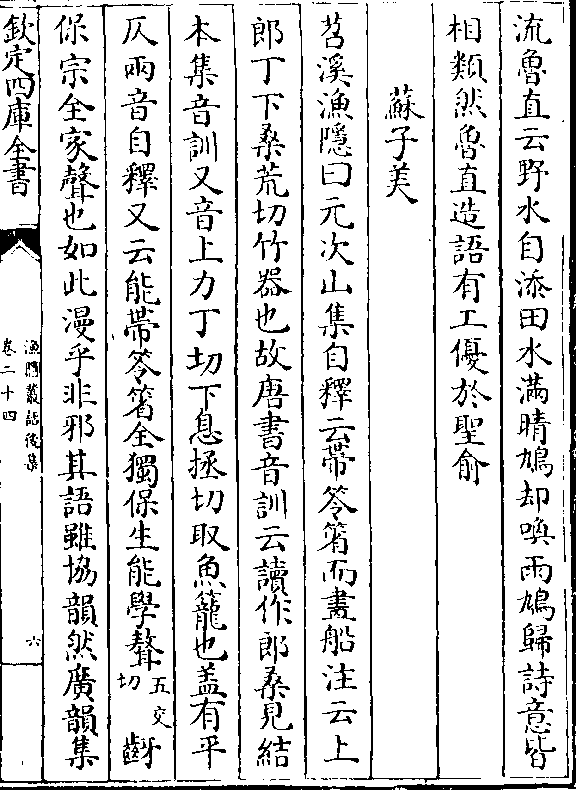 流魯直云野水自添田水滿晴鳩却喚雨鳩歸詩意皆
相類然魯直造語有工優於聖俞
蘇子美
苕溪漁隱曰元次山集自釋云帶笭箵而畫船注云上
郎丁下桑荒切竹器也故唐書音訓云讀作郎桑見結
本集音訓又音上力丁切下息拯切取魚籠也盖有平
仄兩音自釋又云能帶笭箵全獨保生能學聱五交切齖
保宗全家聲也如此漫乎非邪其語雖協韻然廣韻集
欽定四庫全書
漁隱叢話後集
卷二十四
六